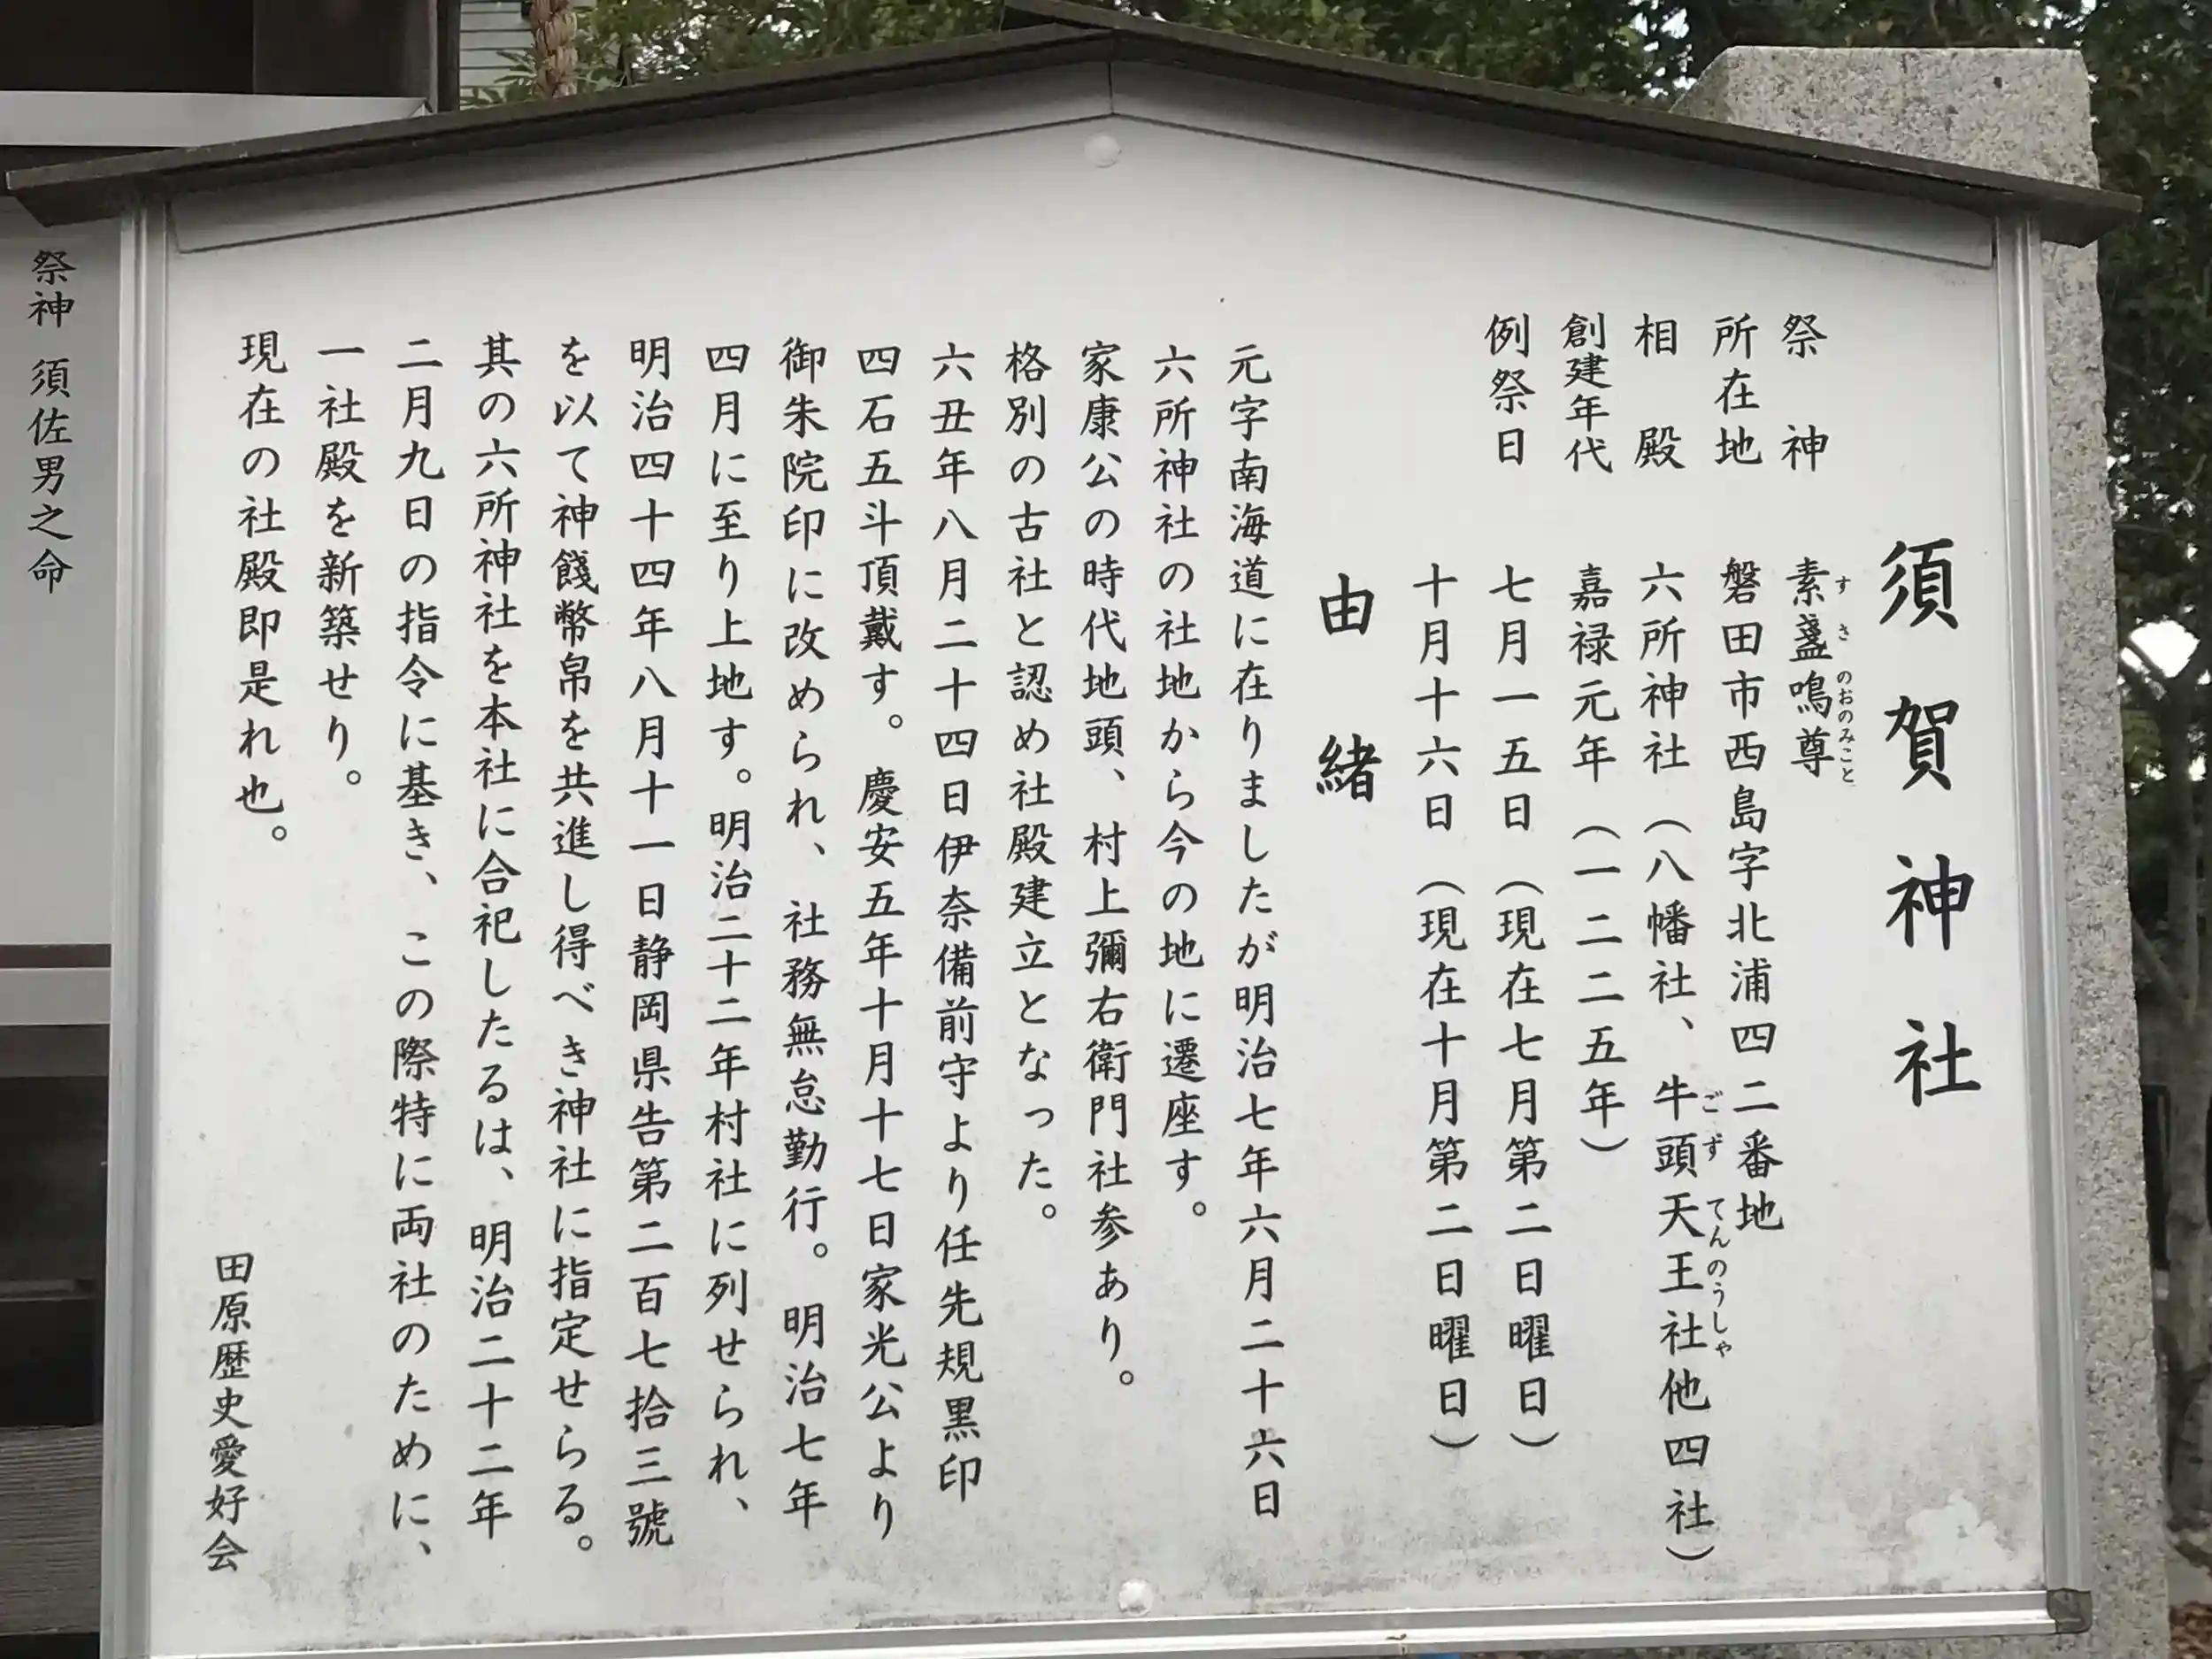 須賀神社
祭神　素盞嗚尊
すさのおのみこと
所在地　磐田市西島字北浦四二番地
相殿　六所神社（八幡社、牛頭天王社他四社）
ごずてんのうしゃ
創建年代　嘉禄元年（一二二五年）
例祭日　七月一五日（現在七月第二日曜日）
十月十六日（現在十月第二日曜日）
由緒
元字南海道に在りましたが明治七年六月二十六日
六所神社の社地から今の地に遷座す。
家康公の時代地頭、村上彌右衛門社参あり。
格別の古社と認め社殿建立となった。
六丑年八月二十四日伊奈備前守より任先規黒印
四石五斗頂戴す。慶安五年十月十七日家光公より
御朱院印に改められ、社務無怠勤行。明治七年
四月に至り上地す。明治二十二年村社に列せられ、
明治四十四年八月十一日静岡県告第二百七拾三號
を以て神餞幣帛を共進し得べき神社に指定せらる。
其の六所神社を本社に合祀したるは、明治二十二年
二月九日の指令に基き、この際特に両社のために、
一社殿を新築せり。
現在の社殿即是れ也。
田原歴史愛好会
祭神　須佐男之命